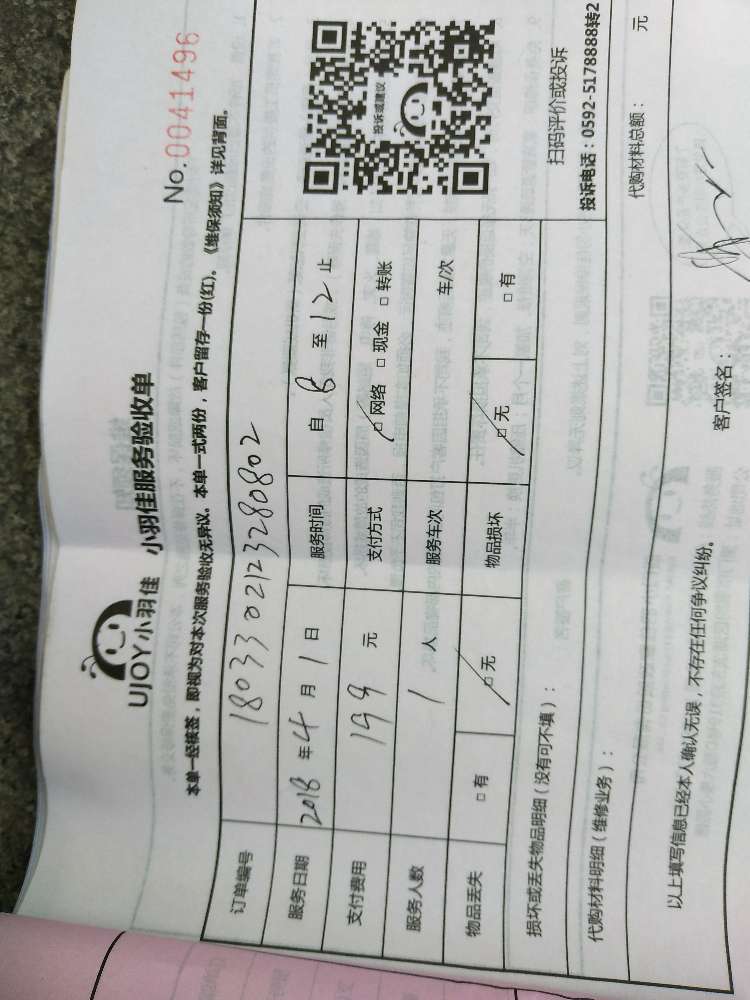 UJOY小羽佳 小羽佳服务验收单
No.0041496
本单一经接签，即视为对本次服务验收无异议。本单一式两份，客户留存一份(红)。《维保须知》详见背面。
订单编号 1803302123280802
服务日期 2018年4月1日 服务时间 自8至12止
支付费用 199元 支付方式 □网络 □现金 □转账
服务人数 1人 服务车次 车/次
物品丢失 □有 □无 物品损坏 □无 □有
投诉或建议
扫码评价或投诉
投诉电话：0592-5178888转2
损坏或丢失物品明细（没有可不填）：
代购材料明细（维修业务）： 代购材料总额： 元
以上填写信息已经本人确认无误，不存在任何争议纠纷。 客户签名：